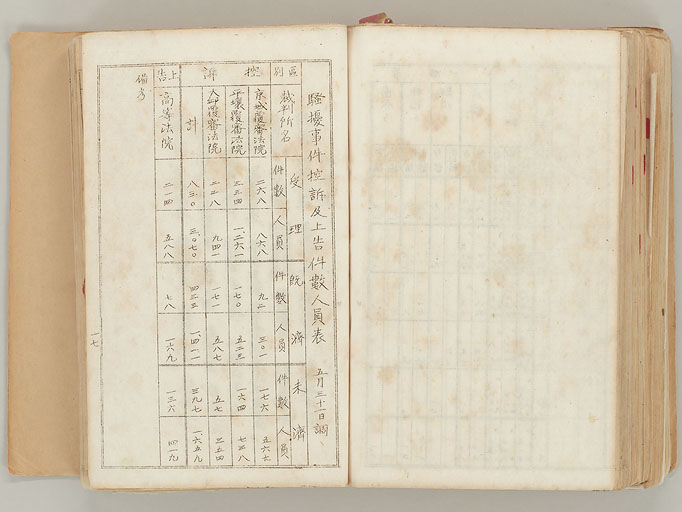 騷擾事件控訴及上告件數人員表　五月三十一日調
區別　受理　既濟　未濟
裁判所名　件數　人員　件數　人員　件數　人員
控訴
京城覆審法院　二六八　八六八　九二　三〇一　一七六　五六七
平壤覆審法院　三三四　一、二六一　一七〇　五二三　一六四　七三八
大邱覆審法院　二二八　九四一　一七一　五八七　五七　三五四
計　八三〇　三、〇七〇　四三三　一、四一一　三九七　一、六五九
上告
高等法院　二一四　五八八　七八　一六九　一三六　四一九
備考
一七